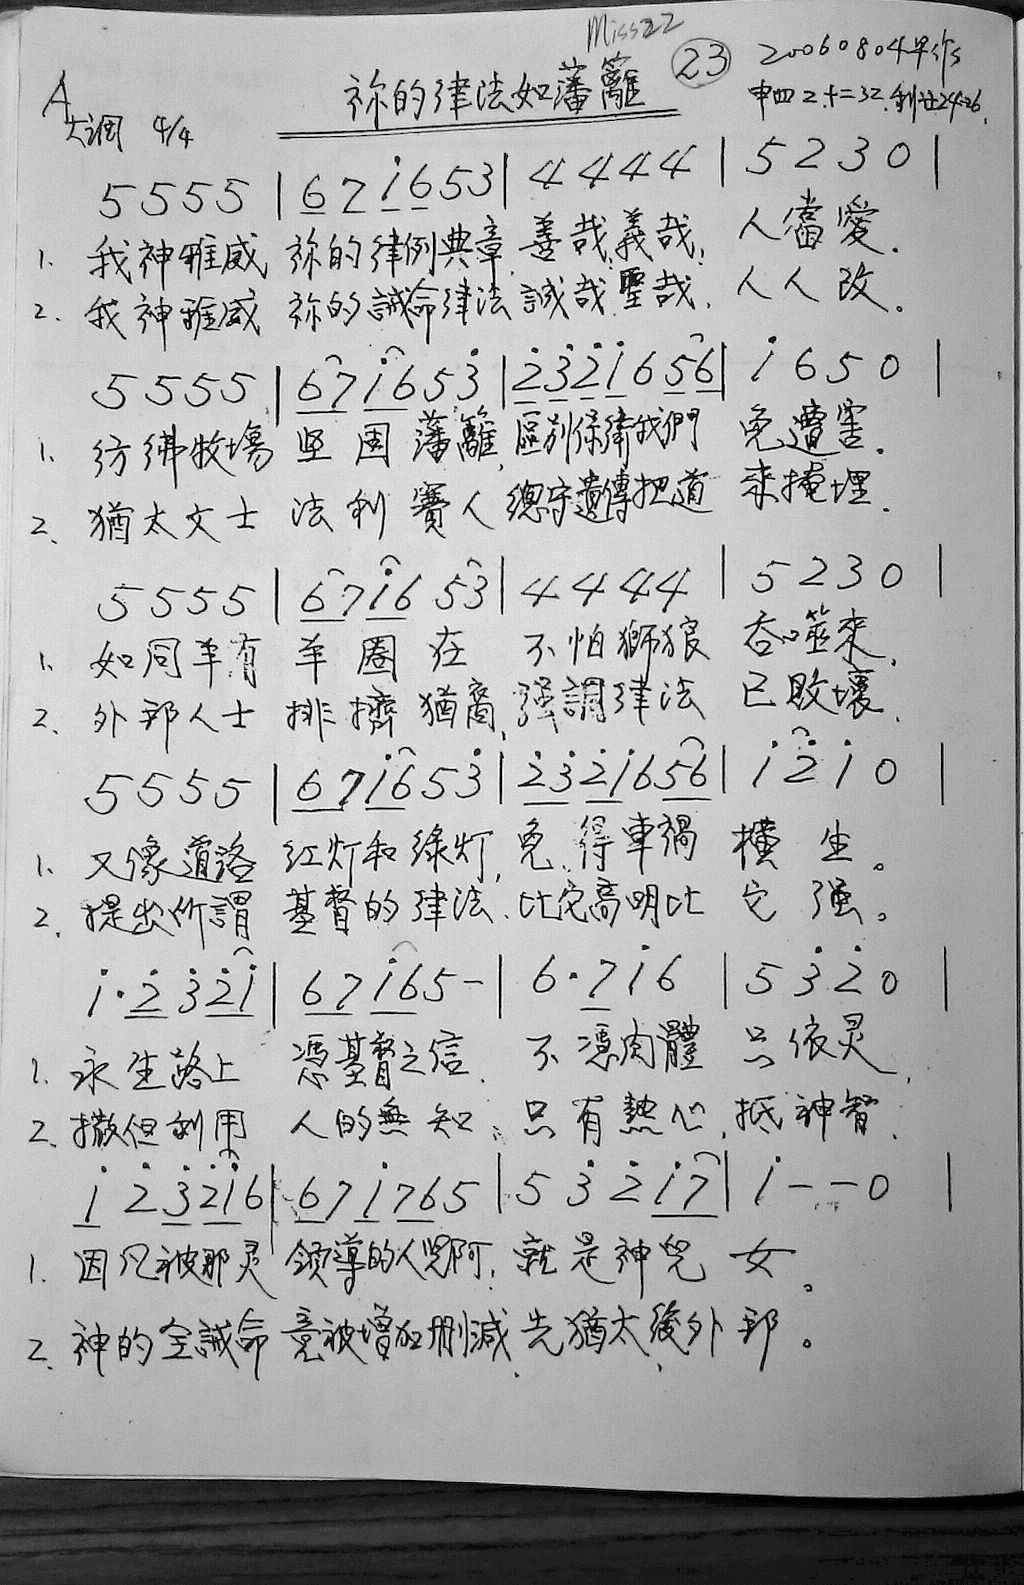 Misszz
祢的律法如藩籬 23 20060804早作
A大调 4/4 申四2.十二32.利廿24-26.
5 5 5 5 | 6 7 i 6 5 3 | 4 4 4 4 | 5 2 3 0 |
1. 我神雅威 祢的律例典章, 善哉,義哉, 人當愛.
2. 我神雅威 祢的誡命律法 誠哉聖哉. 人人改.
5 5 5 5 | 6 7 i 6 5 3̇ | 2̇ 3̇ 2̇ i 6 5 6 | i 6 5 0 |
1. 彷彿牧場 坚固藩籬, 區别保衛我們 免遭害.
2. 猶太文士 法利賽人 總守遺傳把道 來掩埋.
5 5 5 5 | 6 7 i 6 5 3 | 4 4 4 4 | 5 2 3 0 |
1. 如同羊有 羊圈在 不怕獅狼 吞噬來,
2. 外邦人士 排擠猶裔, 强調律法 已敗壞.
5 5 5 5 | 6 7 i 6 5 3̇ | 2̇ 3̇ 2̇ i 6 5 6 | i 2̇ i 0 |
1. 又像道路 红灯和绿灯, 免得車禍 橫生。
2. 提出所謂 基督的律法, 比它高明比 它强。
i · 2̇ 3̇ 2̇ i | 6 7 i 6 5 - | 6 · 7 i 6 | 5 3̇ 2̇ 0 |
1. 永生路上 憑基督之信. 不憑肉體 只依灵,
2. 撒但利用 人的無知, 只有熱心, 抵神智.
i 2̇ 3̇ 2̇ i 6 | 6 7 i 7 6 5 | 5 3̇ 2̇ i 7 | i - - 0 |
1. 因凡被那灵 领導的人兒阿, 就是神兒女。
2. 神的全誡命 竟被增加刪減, 先猶太後外邦。